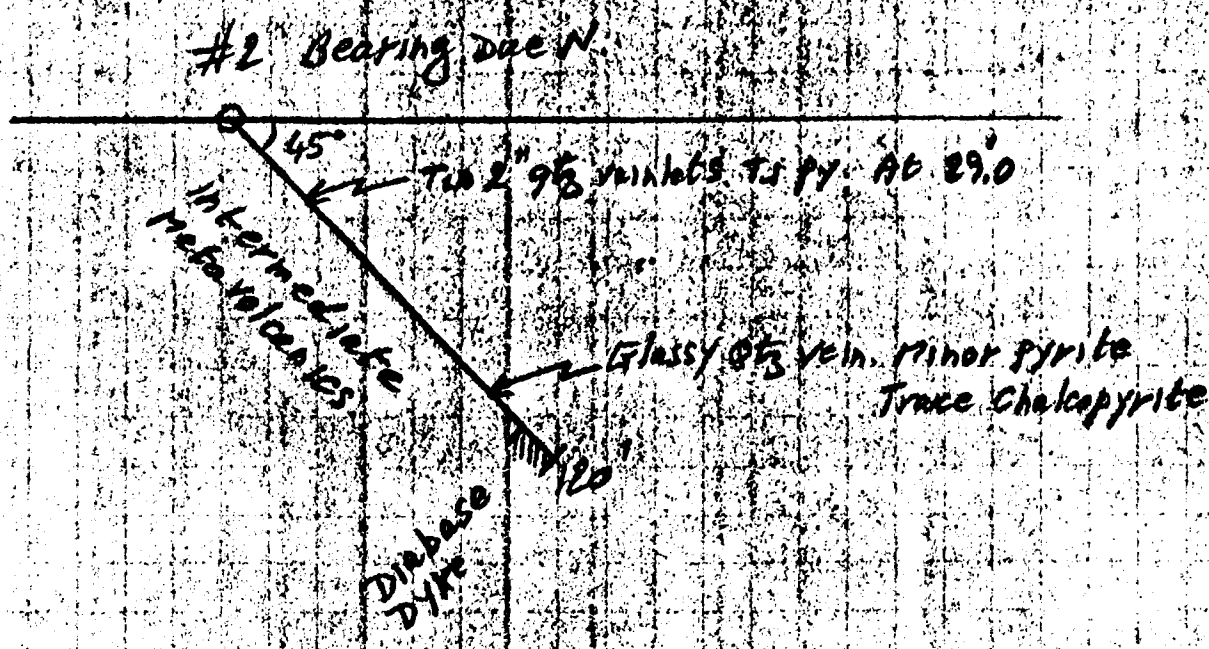 #2 Bearing Due N.
45°
Two 2" qtz veinlets. Ts py. At 29.0'
Intermediate
Metavolcanics
Glassy Qtz vein. Minor pyrite
Trace Chalcopyrite
120'
Diabase
Dyke